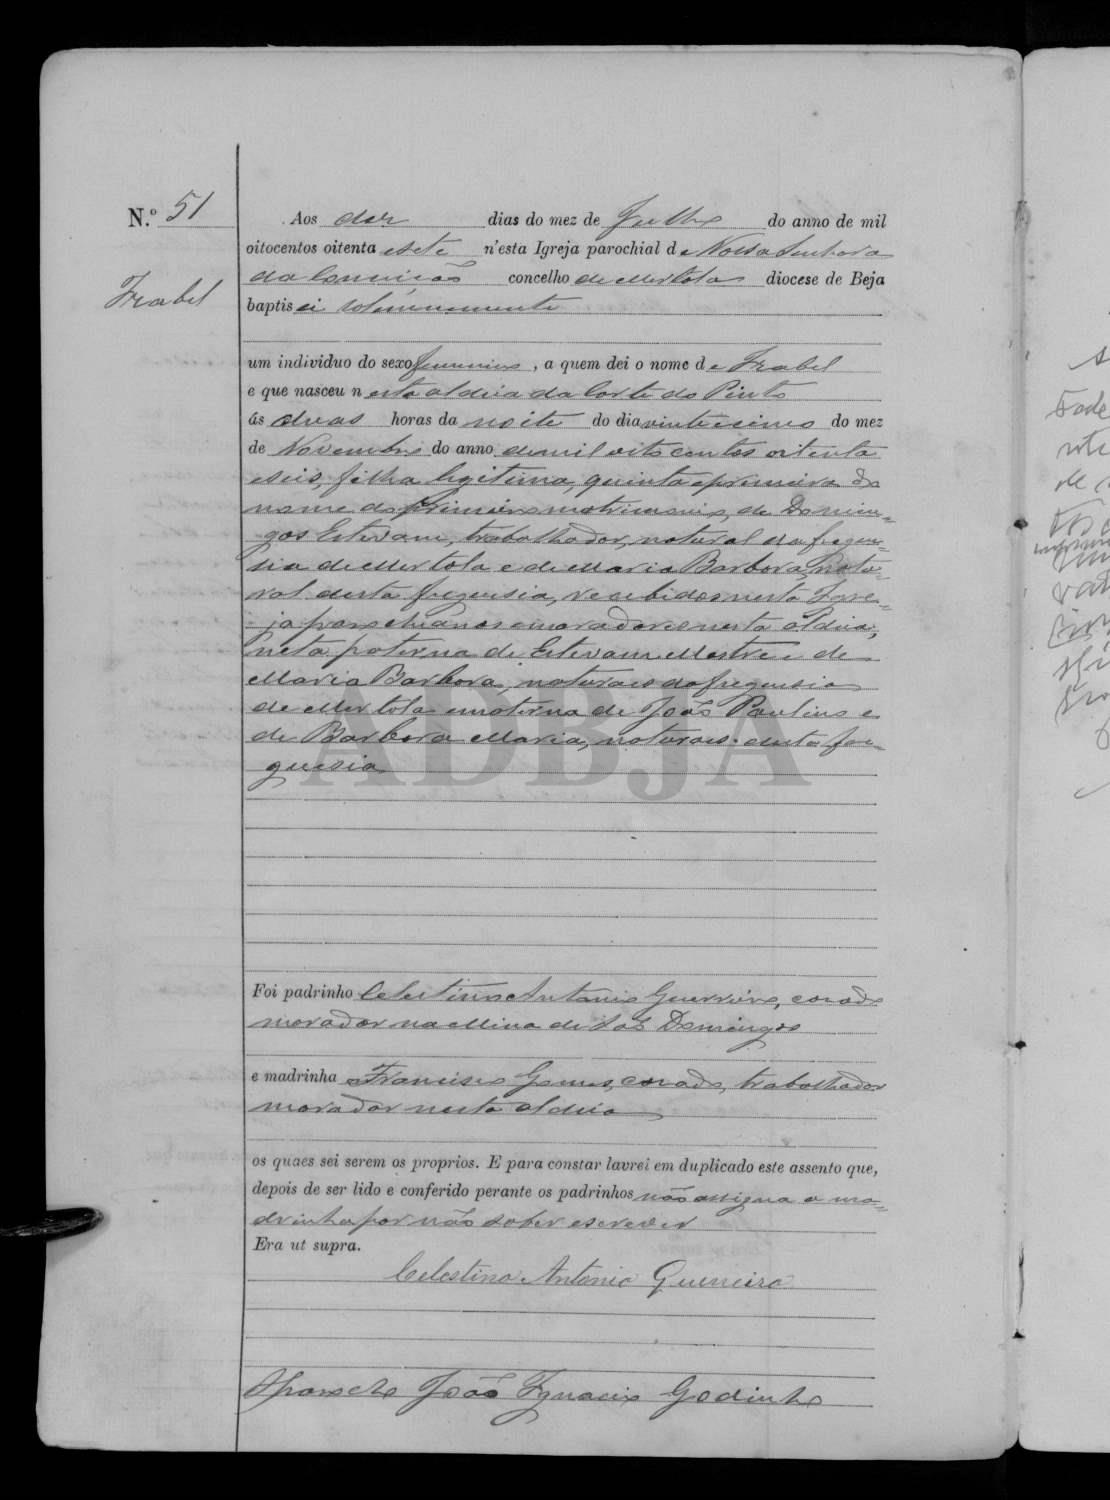 N.º 51
Izabel
Aos dez dias do mez de Julho do anno de mil
oitocentos oitenta e sete n'esta Igreja parochial de Nossa Senhora
da Conceição concelho de Mertola diocese de Beja
baptisei solemnemente
um individuo do sexo femenino, a quem dei o nome de Izabel
e que nasceu nesta aldeia da Corte do Pinto
ás duas horas da noite do dia vintecinco do mez
de Novembro do anno de mil oito centos oitenta
e seis, filha legitima, quinta e primeira do
nome do primeiro matrimonio, de Domin=
gos Estevam, trabalhador, natural da fregue=
sia de Mertola e de Maria Barbora, natu=
ral desta freguesia, recebidos nesta Igre=
ja parochianos e moradores nesta aldeia,
neta paterna de Estevam Mestre e de
Maria Barbora, naturaes da freguesia
de Mertola e materna de João Paulino e
de Barbora Maria, naturaes desta fre=
guesia
ADBJA
Foi padrinho Celestino Antonio Guerreiro, casado
morador na Mina de São Domingos
e madrinha Gomes, casado, trabalhador
morador nesta aldeia
os quaes sei serem os proprios. E para constar lavrei em duplicado este assento que,
depois de ser lido e conferido perante os padrinhos não assigna a ma=
drinha por não saber escrever
Era ut supra.
Celestino Antonio Guerreiro
O Parocho João Ignacio Godinho